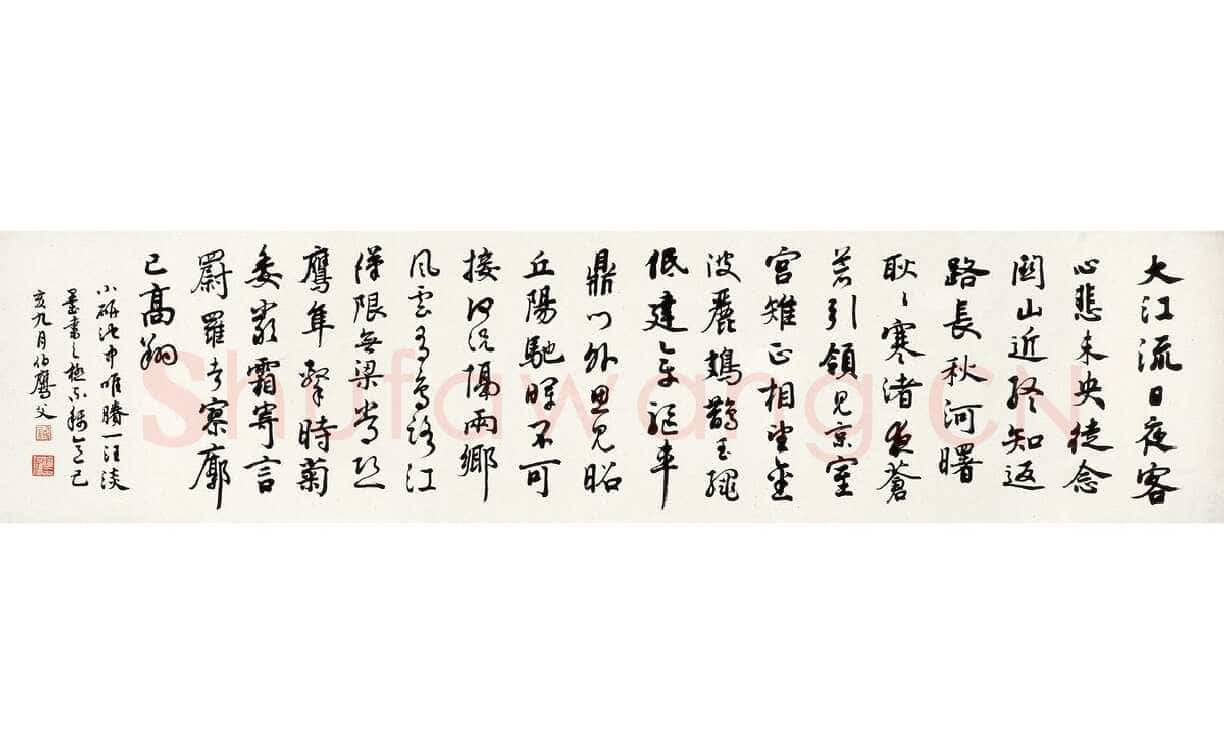 大江流日夜客
心悲未央徒念
關山近終知返
路長秋河曙
耿〻寒渚夜蒼
蒼引領見京室
宮雉正相望金
波麗鳷鵲玉繩
低建章驅車
鼎門外思見昭
丘陽馳暉不可
接何況隔兩鄉
風雲有鳥路江
漢限無梁常恐
鷹隼擊時菊
委嚴霜寄言
罻羅者寥廓
已高翔
小硯池中唯賸一汪淡
墨書之極不稱意己
亥九月伯鷹父
Shufawang.CN